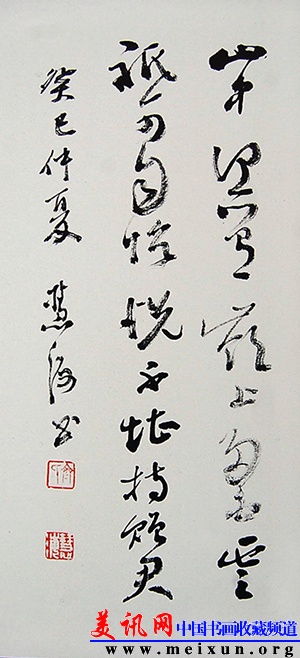 山中何所有岭上多白云
祗可自怡悦不堪持赠君
癸巳仲夏 慧海书
美讯网
中国书画收藏频道
www.meixun.org